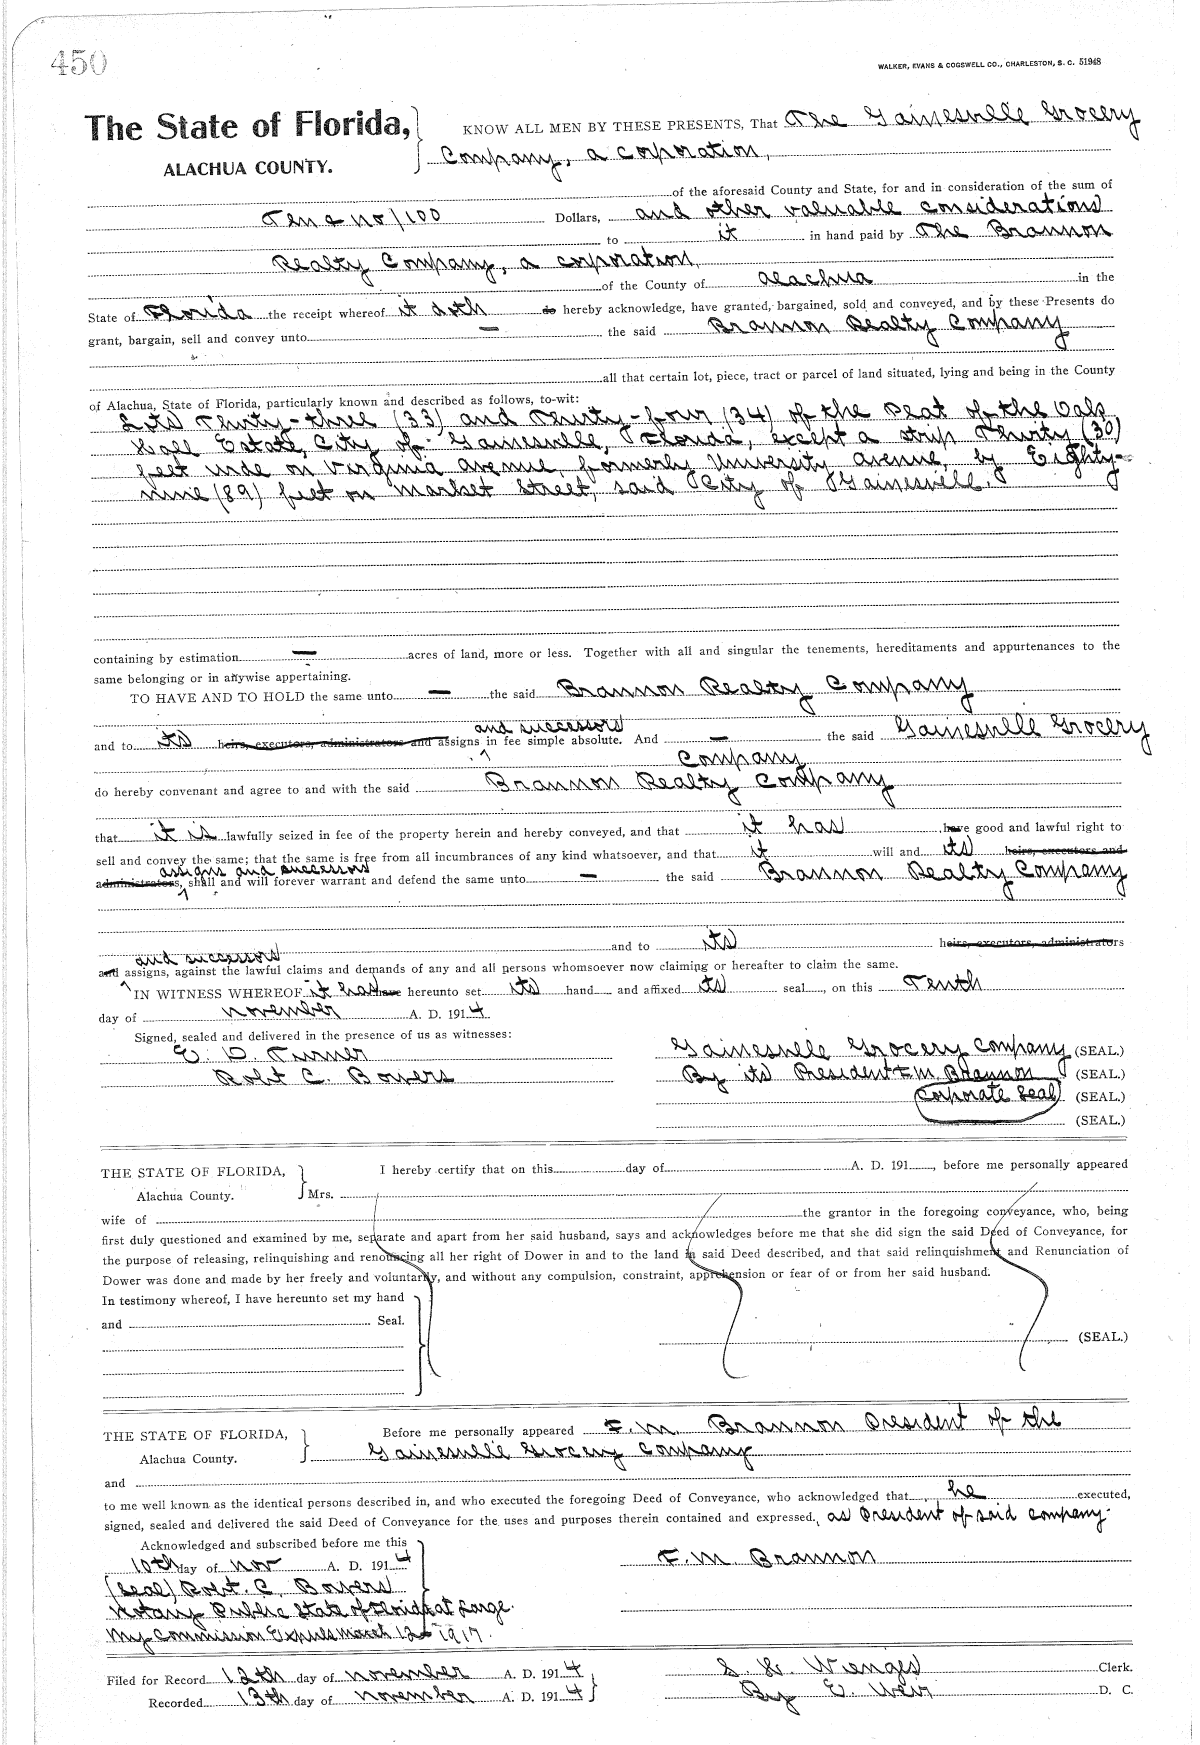 450
WALKER, EVANS & COGSWELL CO., CHARLESTON, S. C. 51948
The State of Florida, KNOW ALL MEN BY THESE PRESENTS, That The Gainesville Grocery
ALACHUA COUNTY. Company, a corporation,
of the aforesaid County and State, for and in consideration of the sum of
Ten & no/100 Dollars, and other valuable considerations
to it in hand paid by The Brannon
Realty Company, a corporation,
of the County of Alachua in the
State of Florida the receipt whereof it doth do hereby acknowledge, have granted, bargained, sold and conveyed, and by these Presents do
grant, bargain, sell and convey unto — the said Brannon Realty Company
all that certain lot, piece, tract or parcel of land situated, lying and being in the County
of Alachua, State of Florida, particularly known and described as follows, to-wit:
Lots Thirty-three (33) and Thirty-four (34) of the Plat of the Oak
Hall Estate, City of Gainesville, Florida, except a strip Thirty (30)
feet wide on Virginia Avenue, formerly University Avenue, by Eighty-
nine (89) feet on Market Street, said City of Gainesville.
containing by estimation — acres of land, more or less. Together with all and singular the tenements, hereditaments and appurtenances to the
same belonging or in anywise appertaining.
TO HAVE AND TO HOLD the same unto — the said Brannon Realty Company
and successors
and to its heirs, executors, administrators and assigns in fee simple absolute. And — the said Gainesville Grocery
Company
do hereby convenant and agree to and with the said Brannon Realty Company
that it is lawfully seized in fee of the property herein and hereby conveyed, and that it has have good and lawful right to
sell and convey the same; that the same is free from all incumbrances of any kind whatsoever, and that it will and its heirs, executors and
assigns and successors
administrators, shall and will forever warrant and defend the same unto — the said Brannon Realty Company
and to its heirs, executors, administrators
and successors
and assigns, against the lawful claims and demands of any and all persons whomsoever now claiming or hereafter to claim the same.
IN WITNESS WHEREOF it has have hereunto set its hand and affixed its seal, on this Tenth
day of November A. D. 1914.
Signed, sealed and delivered in the presence of us as witnesses:
E. D. Turner Gainesville Grocery Company (SEAL.)
Robt C. Bowers By its President F. M. Brannon (SEAL.)
Corporate Seal (SEAL.)
(SEAL.)
THE STATE OF FLORIDA, I hereby certify that on this day of A. D. 191 , before me personally appeared
Alachua County. Mrs.
wife of the grantor in the foregoing conveyance, who, being
first duly questioned and examined by me, separate and apart from her said husband, says and acknowledges before me that she did sign the said Deed of Conveyance, for
the purpose of releasing, relinquishing and renouncing all her right of Dower in and to the land in said Deed described, and that said relinquishment and Renunciation of
Dower was done and made by her freely and voluntarily, and without any compulsion, constraint, apprehension or fear of or from her said husband.
In testimony whereof, I have hereunto set my hand
and Seal.
(SEAL.)
THE STATE OF FLORIDA, Before me personally appeared F. M. Brannon President of the
Alachua County. Gainesville Grocery Company
and
to me well known as the identical persons described in, and who executed the foregoing Deed of Conveyance, who acknowledged that he executed,
signed, sealed and delivered the said Deed of Conveyance for the uses and purposes therein contained and expressed, as President of said company.
Acknowledged and subscribed before me this
10th day of Nov A. D. 1914 F. M. Brannon
(Seal) Robt. C. Bowers
Notary Public State of Florida at Large.
My Commission Expires March 12 1917.
Filed for Record 12th day of November A. D. 1914 S. H. Wienges Clerk.
Recorded 13th day of November A. D. 1914 By E. Weir D. C.